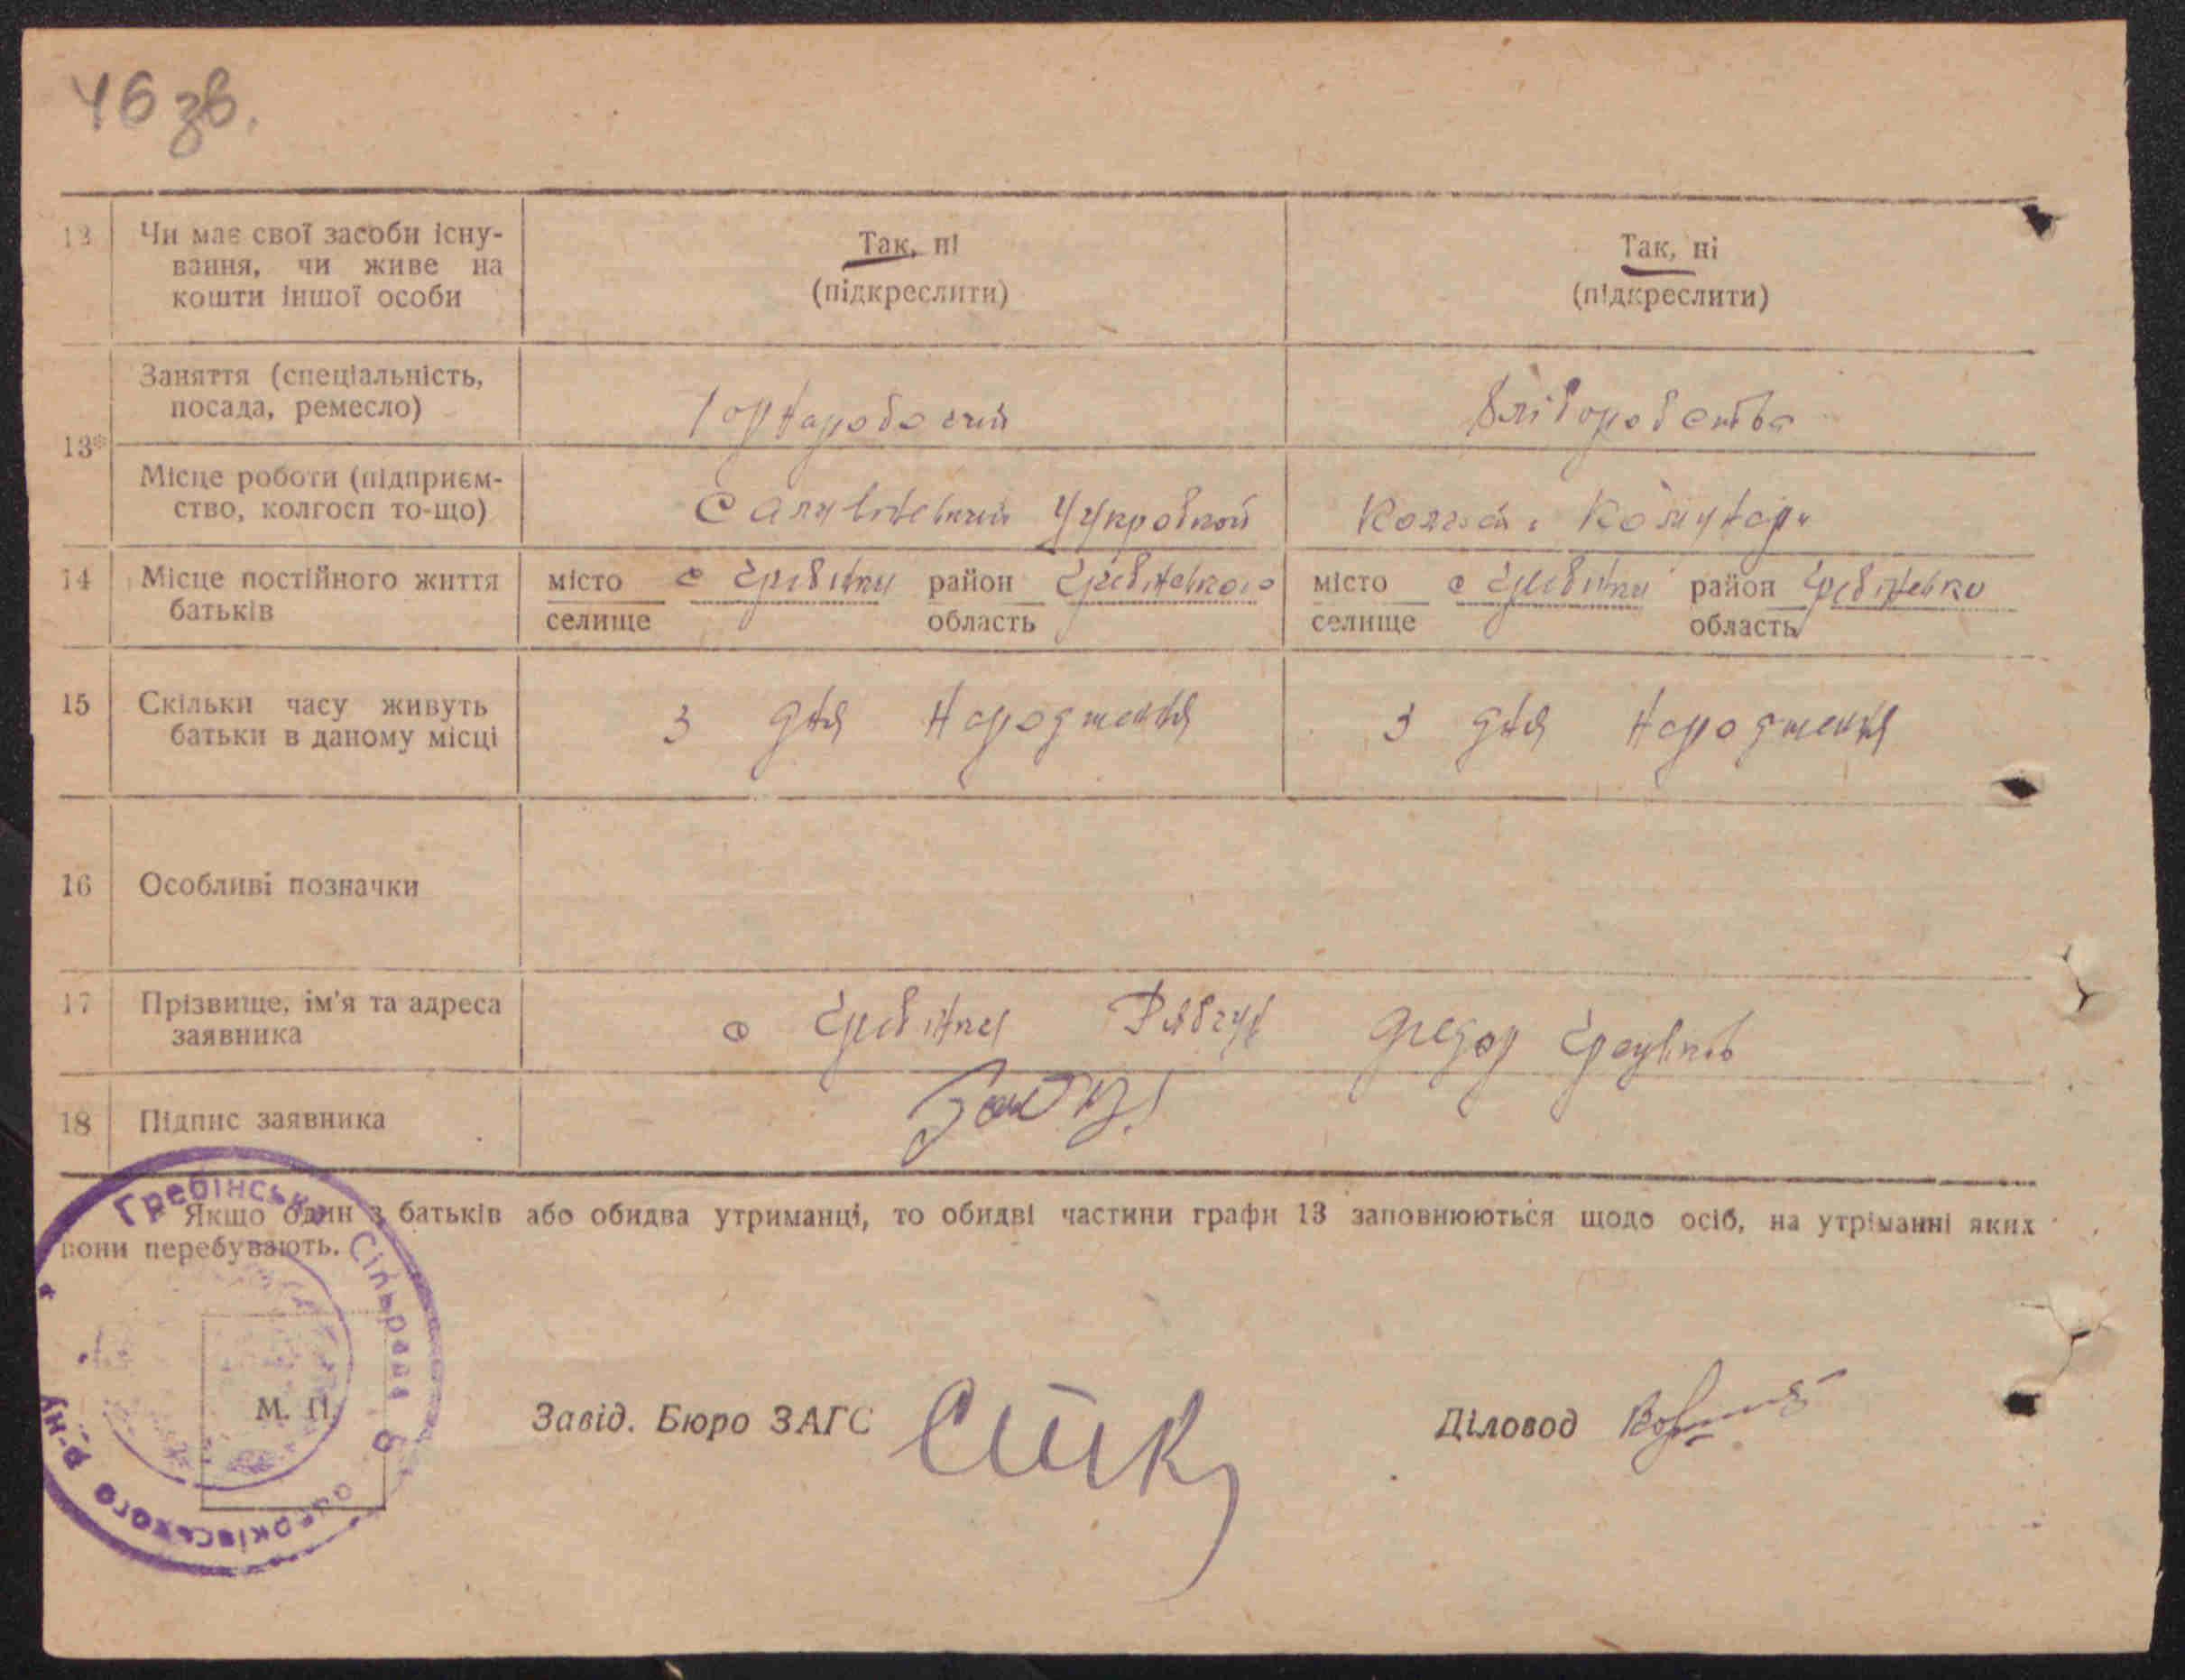 46 зв.
12 Чи має свої засоби існу-
вання, чи живе на
кошти іншої особи
Так, ні
(підкреслити)
Так, ні
(підкреслити)
13*
Заняття (спеціальність,
посада, ремесло)
Чорнаробочий
Хліборобства
Місце роботи (підприєм-
ство, колгосп то-що)
Саливонський Цукровий
Колгосп Комунари
14 Місце постійного життя
батьків
місто с Гребінки район Гребінського
селище область
місто с Гребінки район
селище область
15 Скільки часу живуть
батьки в даному місці
З дня народження
З дня народження
16 Особливі позначки
17 Прізвище, ім'я та адреса
заявника
с Гребінки Рябчун Федор
18 Підпис заявника
* Якщо один з батьків або обидва утриманці, то обидві частини графи 13 заповнюються щодо осіб, на утріманні яких
вони перебувають.
Гребінська Сільрада
р-ну
М. П.
Завід. Бюро ЗАГС
Діловод